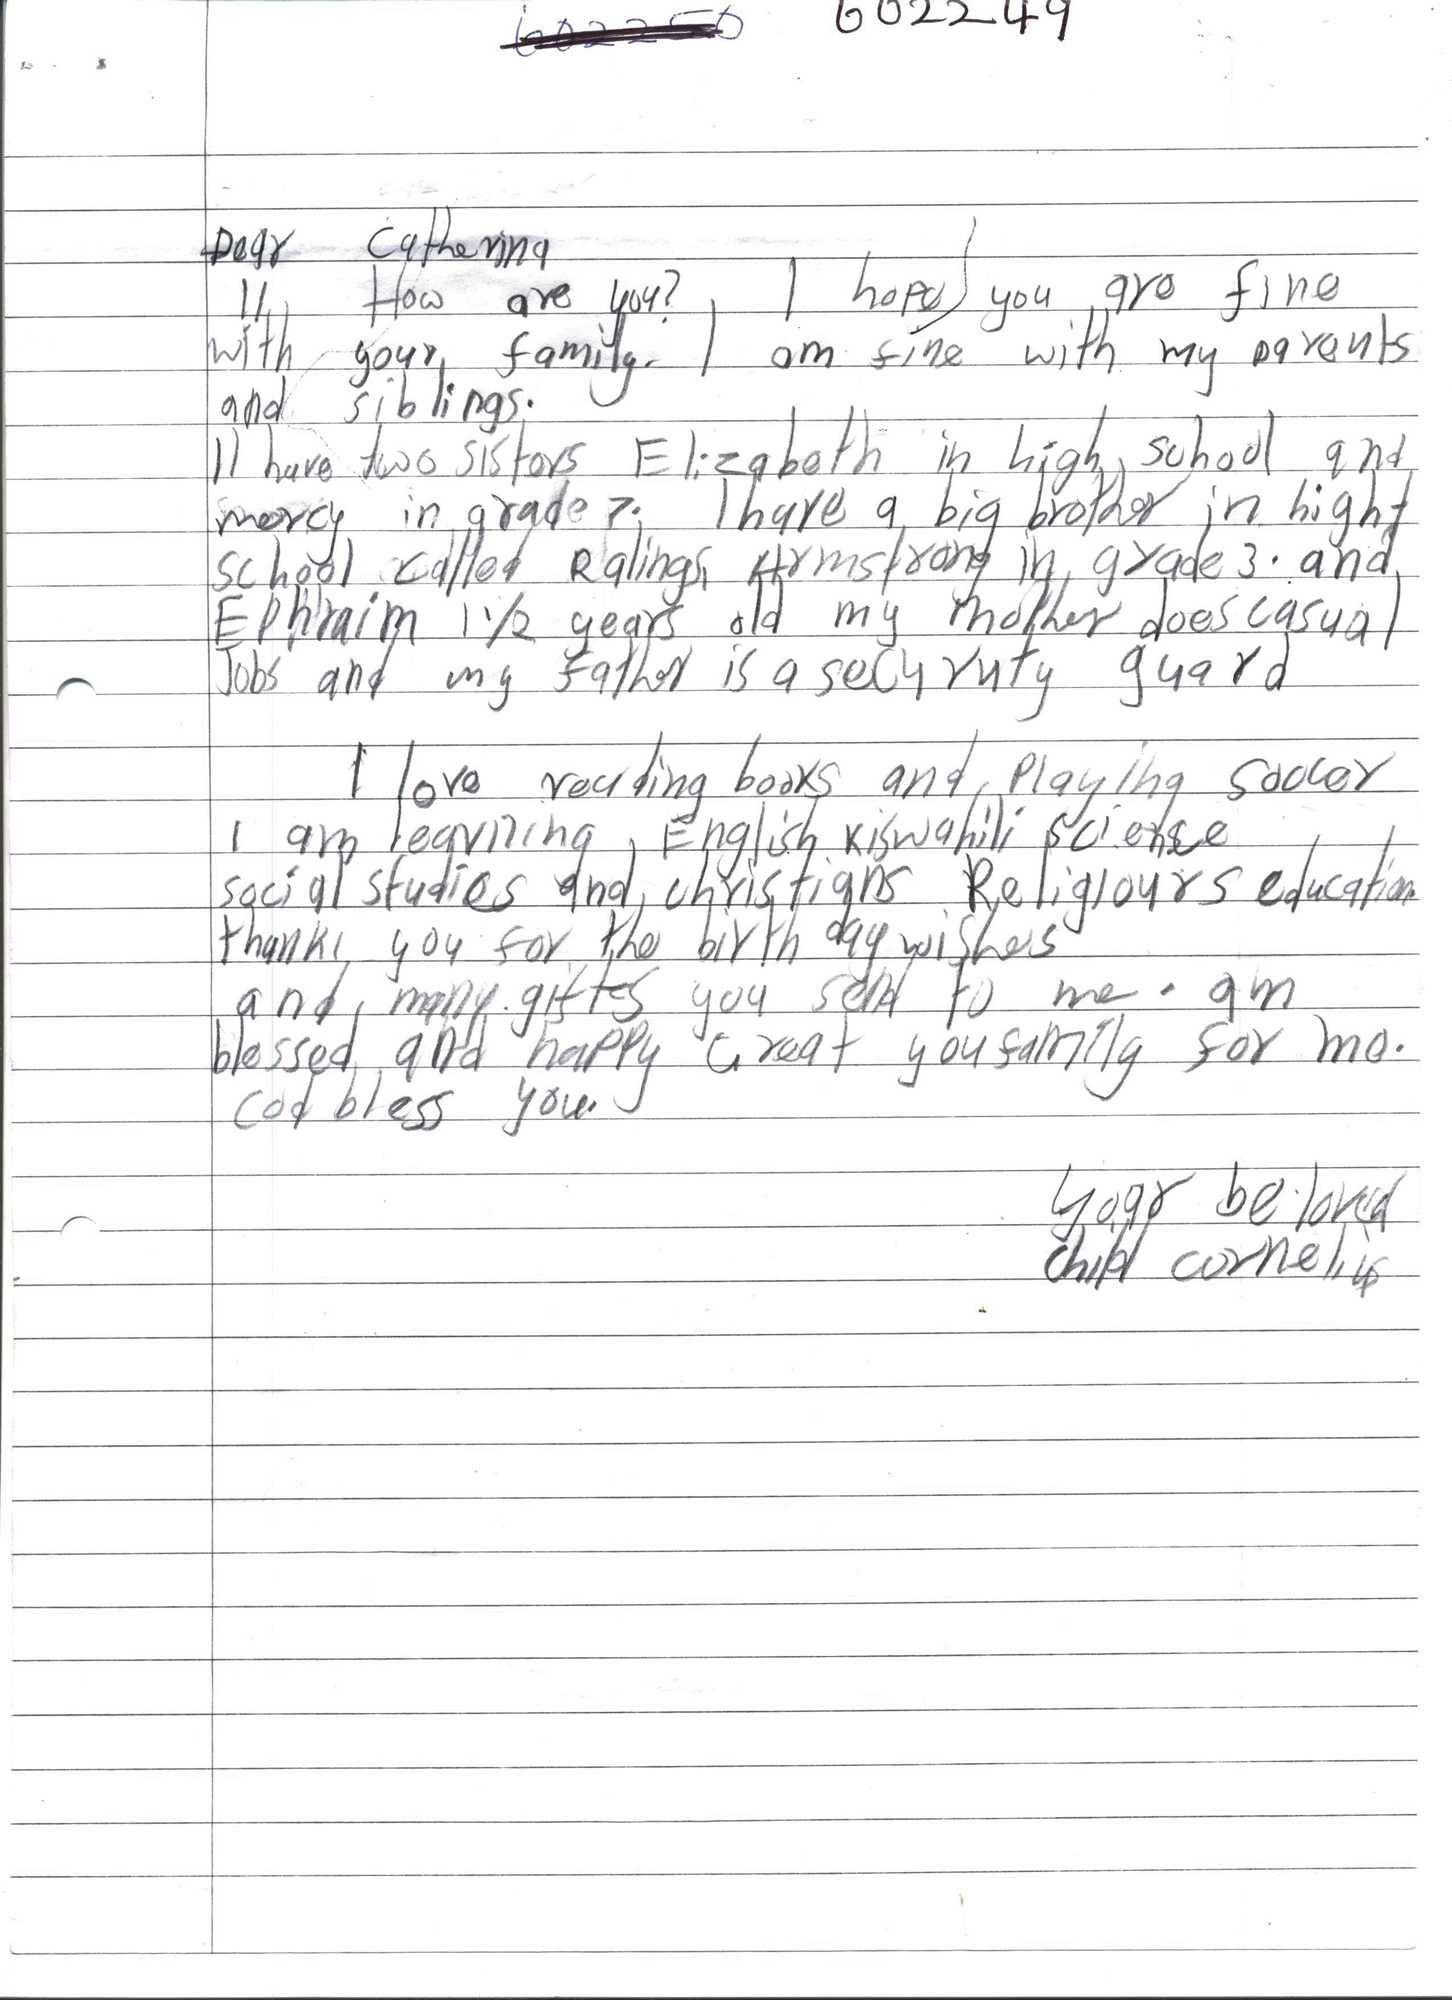 602250 602249
Dear Catherina
How are you? I hope you are fine
with your family. I am fine with my parents
and siblings.
I have two sisters Elizabeth in high school and
mercy in grade 7. I have a big brother in hight
school called Ralings, Armstrong in grade 3. and
Ephraim 1 1/2 years old my mother does casual
Jobs and my father is a securuty guard
I love reading books and playing soccer
I am learning English kiswahili science
social studies and christians Religiours education
thank you for the birth day wishes
and many giftes you send to me. am
blessed and happy Great you family for me.
God bless you.
Your be loved
child cornelius